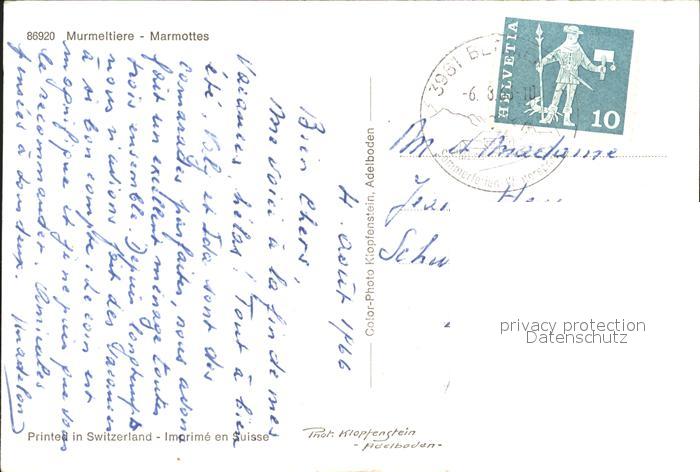 86920 Murmeltiere - Marmottes
4. Août 1966
Bien Chers,
Me voici à la fin de mes
Vacances, hélas! Tout à bien
été, Poly et Ida sont des
camarades parfaites, nous avons
fait un exellent ménage toutes
trois ensemble. Depuis longtemps
nous n'avions fait des vacances
à si bon compte: le coin est
magnifique et je ne puis que vous
le recommander. Amicales
pensées à tous deux. Madelon
Printed in Switzerland - Imprimé en Suisse
Color-Photo Klopfenstein, Adelboden
HELVETIA
10
3981
-6.8.
M et Madame
Jean
Schw
privacy protection
Datenschutz
Phot. Klopfenstein
- Adelboden -